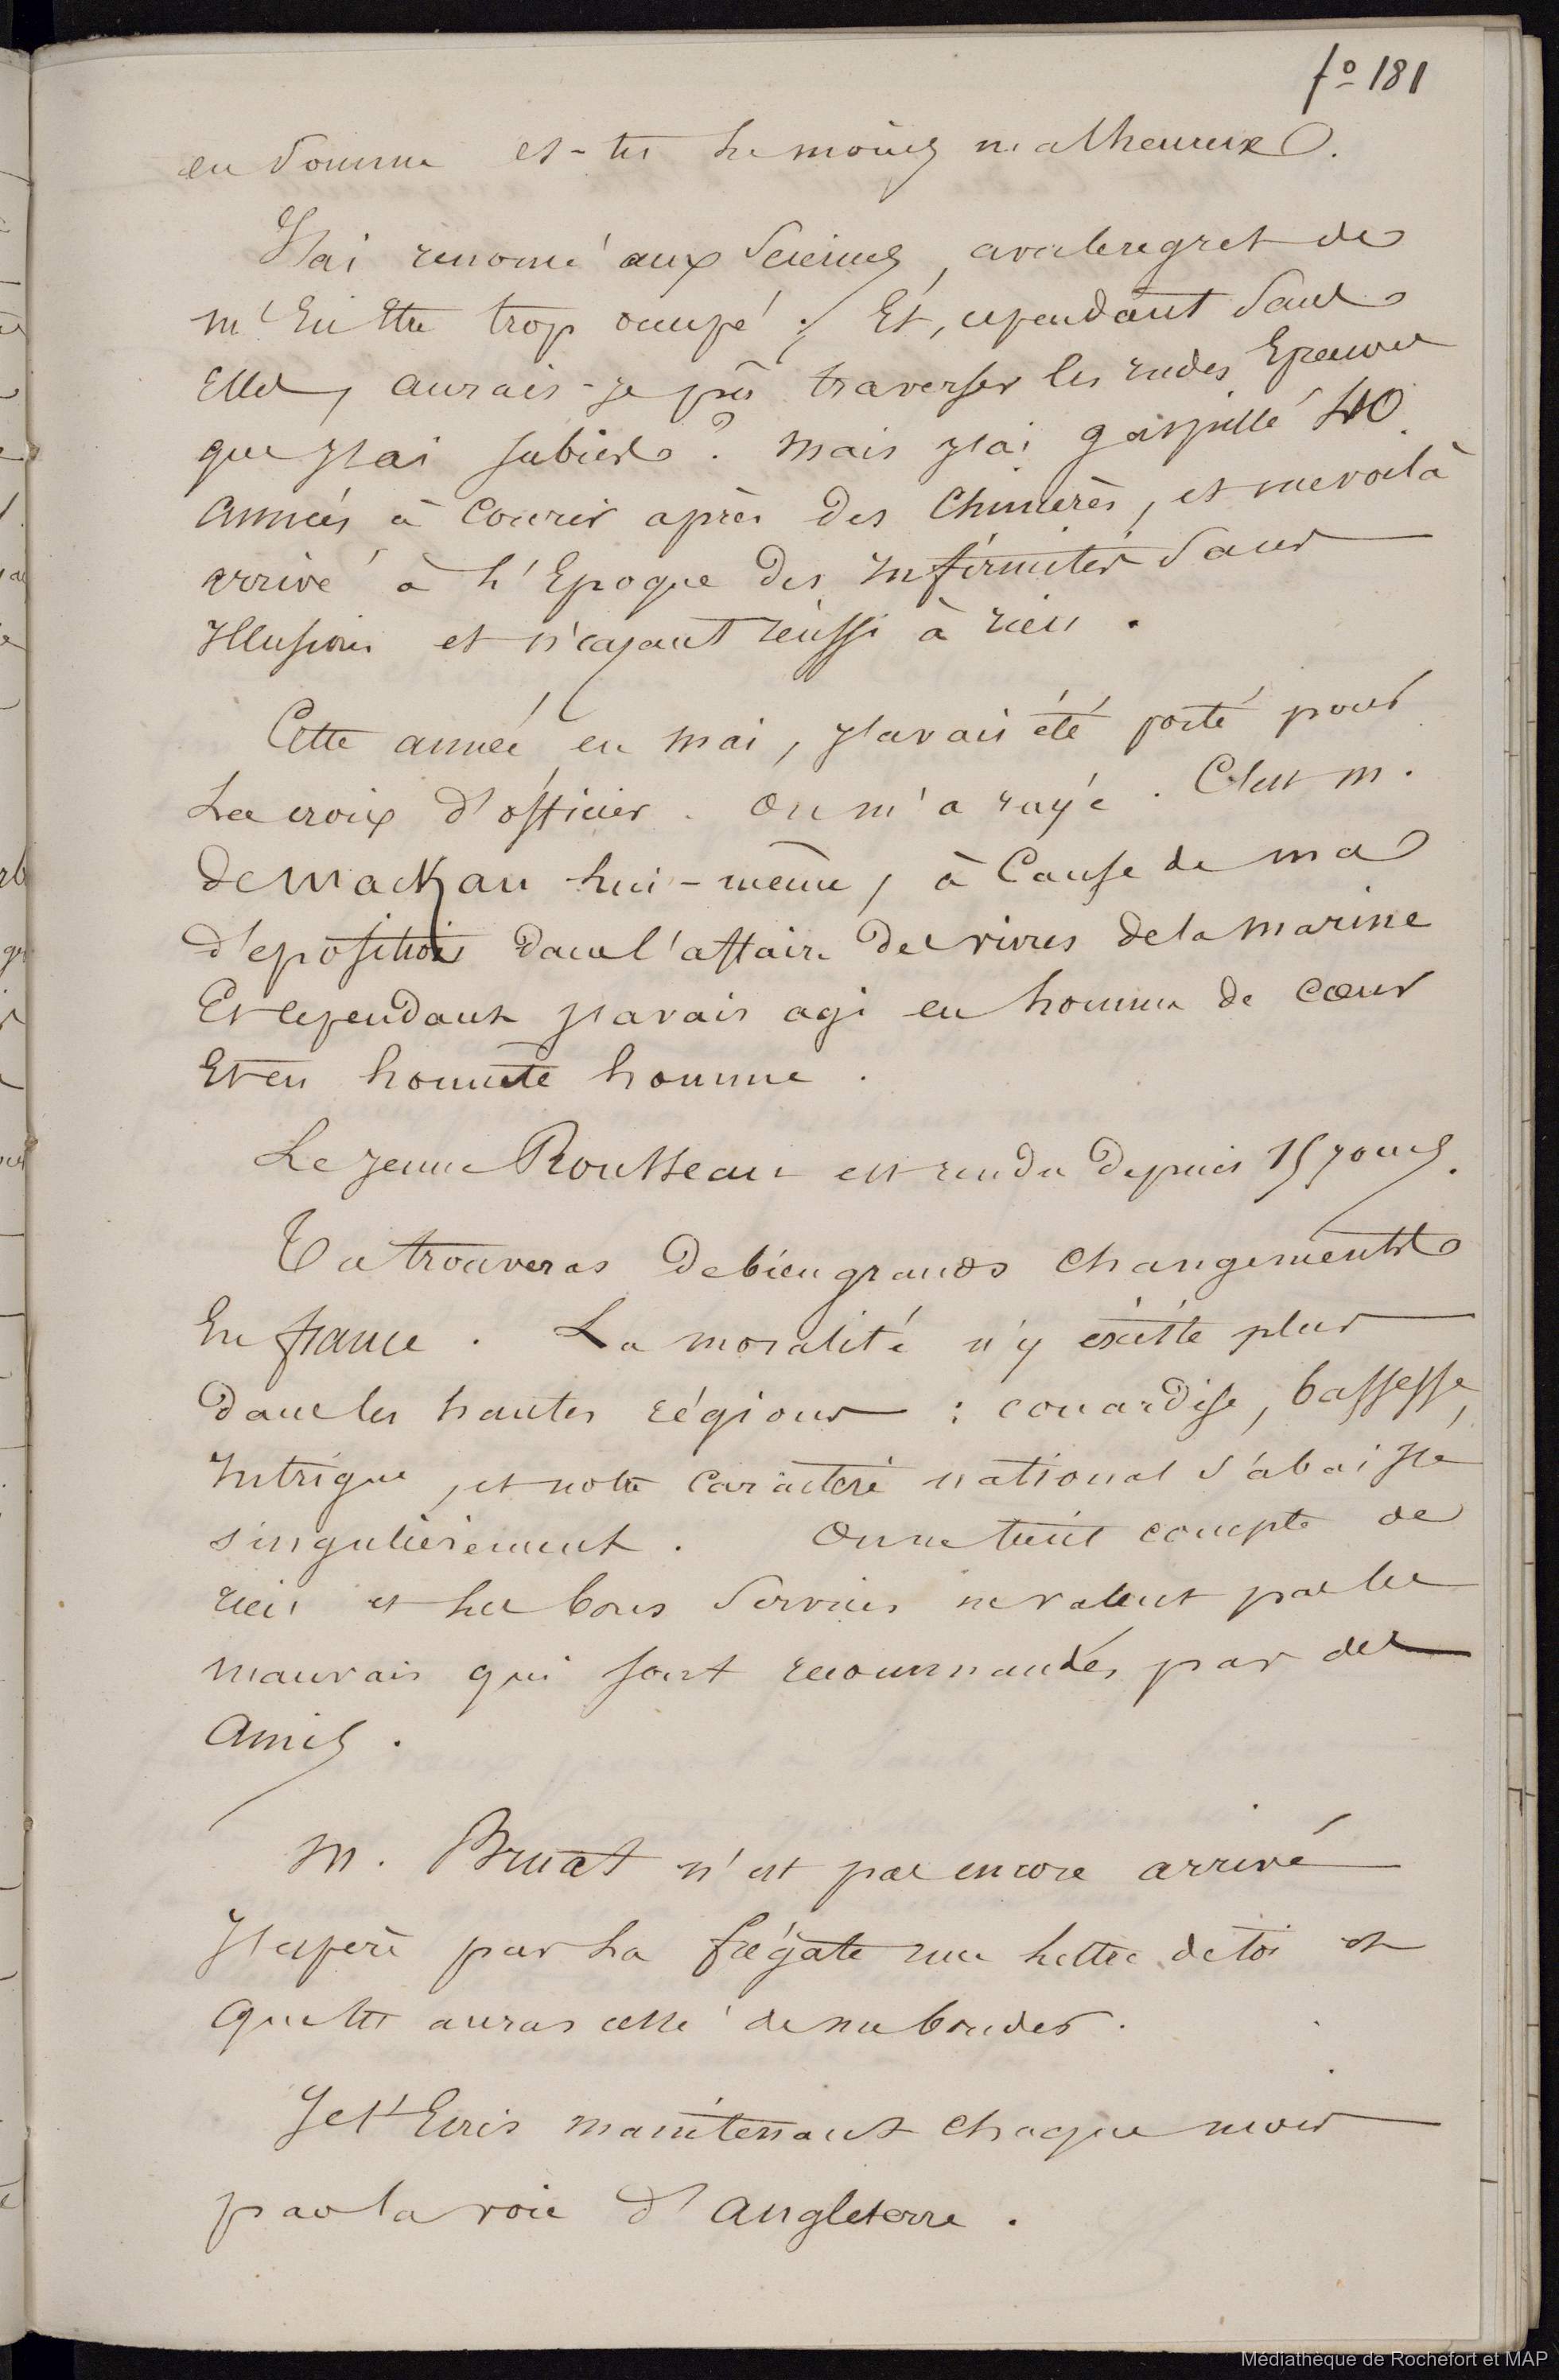 fo 181
en somme es-tu le moins malheureux.
J'ai renoncé aux Sciences, avec le regret de
m'En Etre trop occupé ; Et, cependant Sans
Elles, aurais-je pu traverser les rudes Epreuves
que j'ai subies ? Mais j'ai gaspillé 40
années à Courir après des Chimères, et me voilà
arrivé à l'Epoque des Infirmités Sans
Illusions et n'ayant réussi à rien.
Cette année en mai, j'avais été porté pour
La croix d'officier. on m'a rayé. C'est M.
de Mackau lui-même, à Cause de ma
déposition dans l'affaire des vivres de la Marine
Et cependant j'avais agi en homme de cœur
Et en honnête homme.
Le jeune Rousseau est rendu depuis 15 jours.
Tu trouveras de bien grands changements
En france. La moralité n'y existe plus
dans les hautes régions : couardise, bassesse,
Intrigue, et notre caractère national s'abaisse
singulièrement. On ne tient compte de
rien et les bons Services ne valent pas les
mauvais qui sont recommandés par des
Amis.
M. Bruat n'est pas encore arrivé
J'espère par la frégate une lettre de toi et
que tu auras cessé de me bouder.
Je t'Ecris maintenant chaque mois
par la voie d'Angleterre.
Médiathèque de Rochefort et MAP